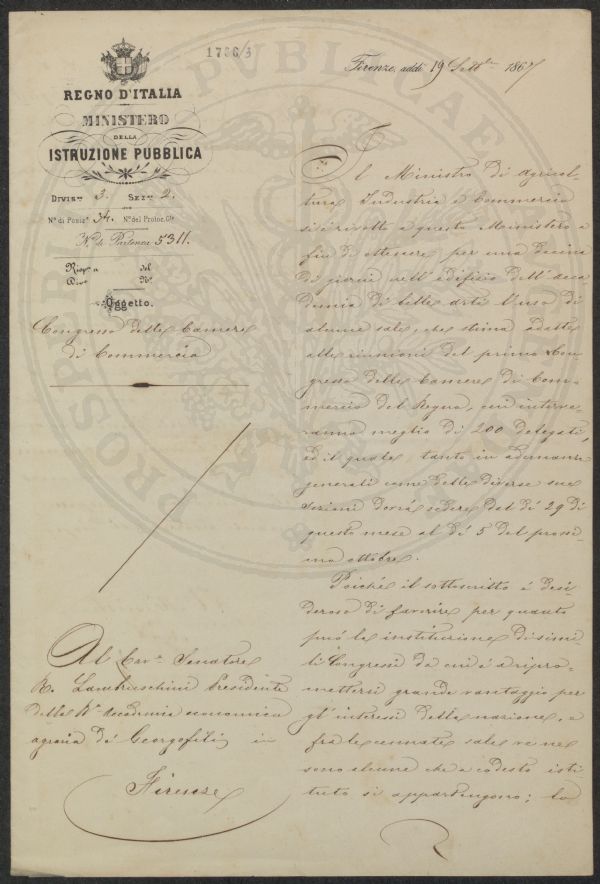 1786/3
Firenze, addì 19 Settbre 1867
REGNO D'ITALIA
MINISTERO
DELLA
ISTRUZIONE PUBBLICA
Divisne 3. Sezne 2.
No. di Posizne 34. No. del Protoc. Gle.
No. di Partenza 5311.
Rispa a del
Divne No.
Oggetto.
Congresso delle Camere
di Commercio
Il Ministro di Agricol-
tura Industria e Commercio
si è rivolto a questo Ministero a
fin di ottenere per una decina
di giorni nell'edifizio dell'acca-
demia di belle arti l'uso di
alcune sale, che stima adatte
alle riunioni del primo Con-
gresso delle Camere di Com-
mercio del Regno, cui interver-
ranno meglio di 200 delegati,
ed il quale, tanto in adunanze
generali come delle diverse sue
sezioni dovrà sedere dal dì 29 di
questo mese al dì 5 del prossi-
mo ottobre.
Poichè il sottoscritto è desi-
deroso di favorire per quanto
può la instituzione di simi-
li Congressi da cui è a ripro-
mettersi grande vantaggio per
gl'interessi della nazione, e
fra le cennate sale ve ne
sono alcune che a codesto isti-
tuto si appartengono; lo
Al Cav. Senatore
R. Lambruschini Presidente
della Ra Accademia economico
agraria dei Georgofili in
Firenze
PROSPERITATI PUBLICAE